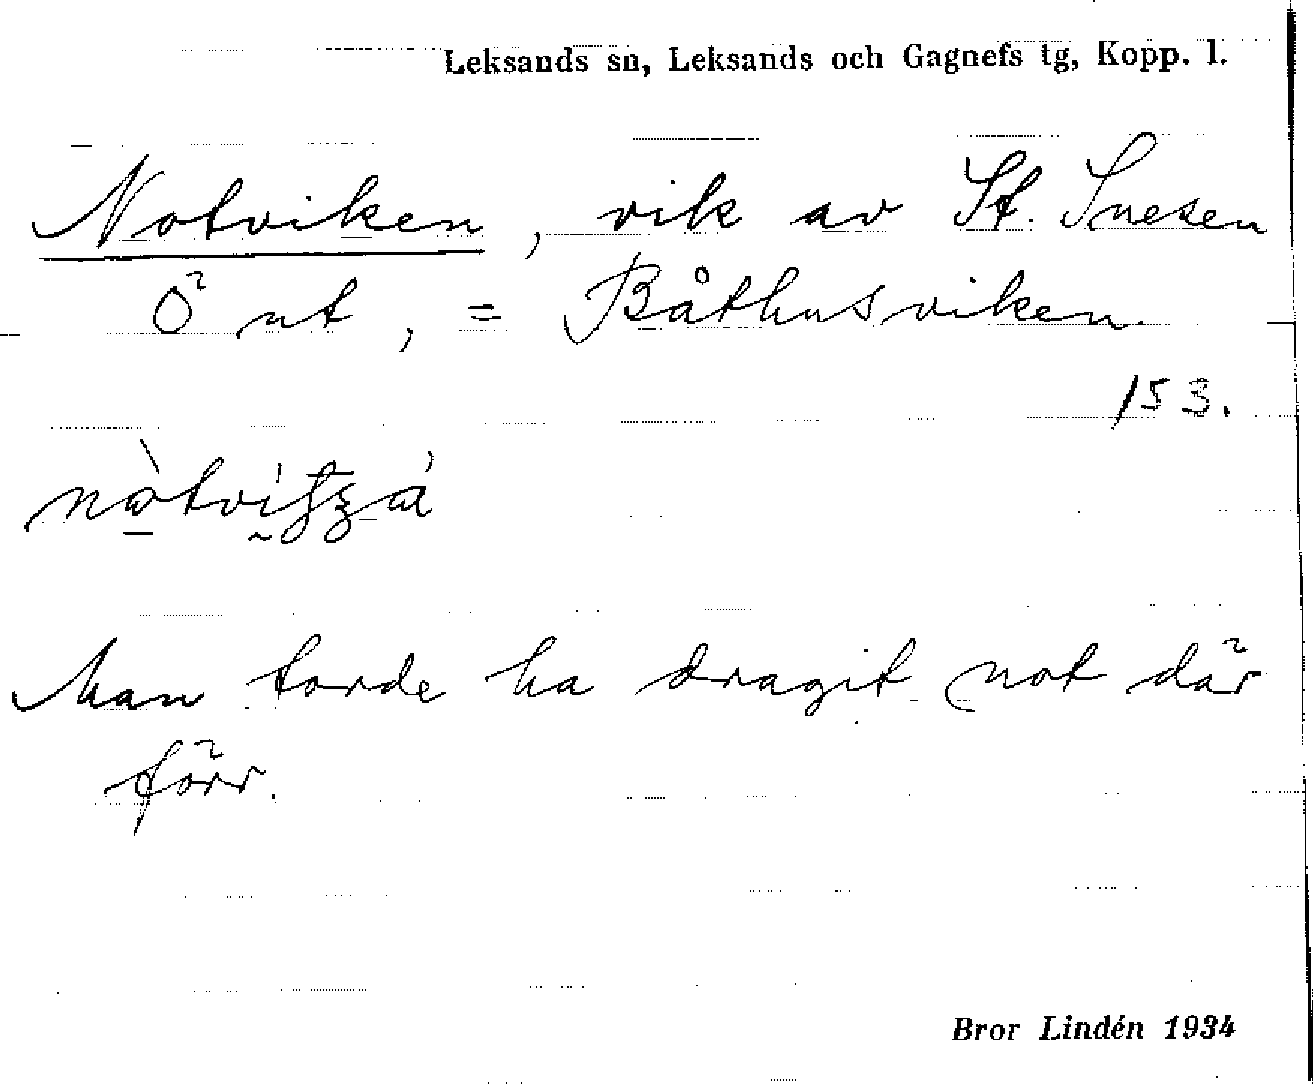 Leksands sn, Leksands och Gagnefs tg, Kopp. l.
Notviken, vik av St. Snesen
Ö ut, = Båthusviken.
153.
Man torde ha dragit not där
förr.
Bror Lindén 1934